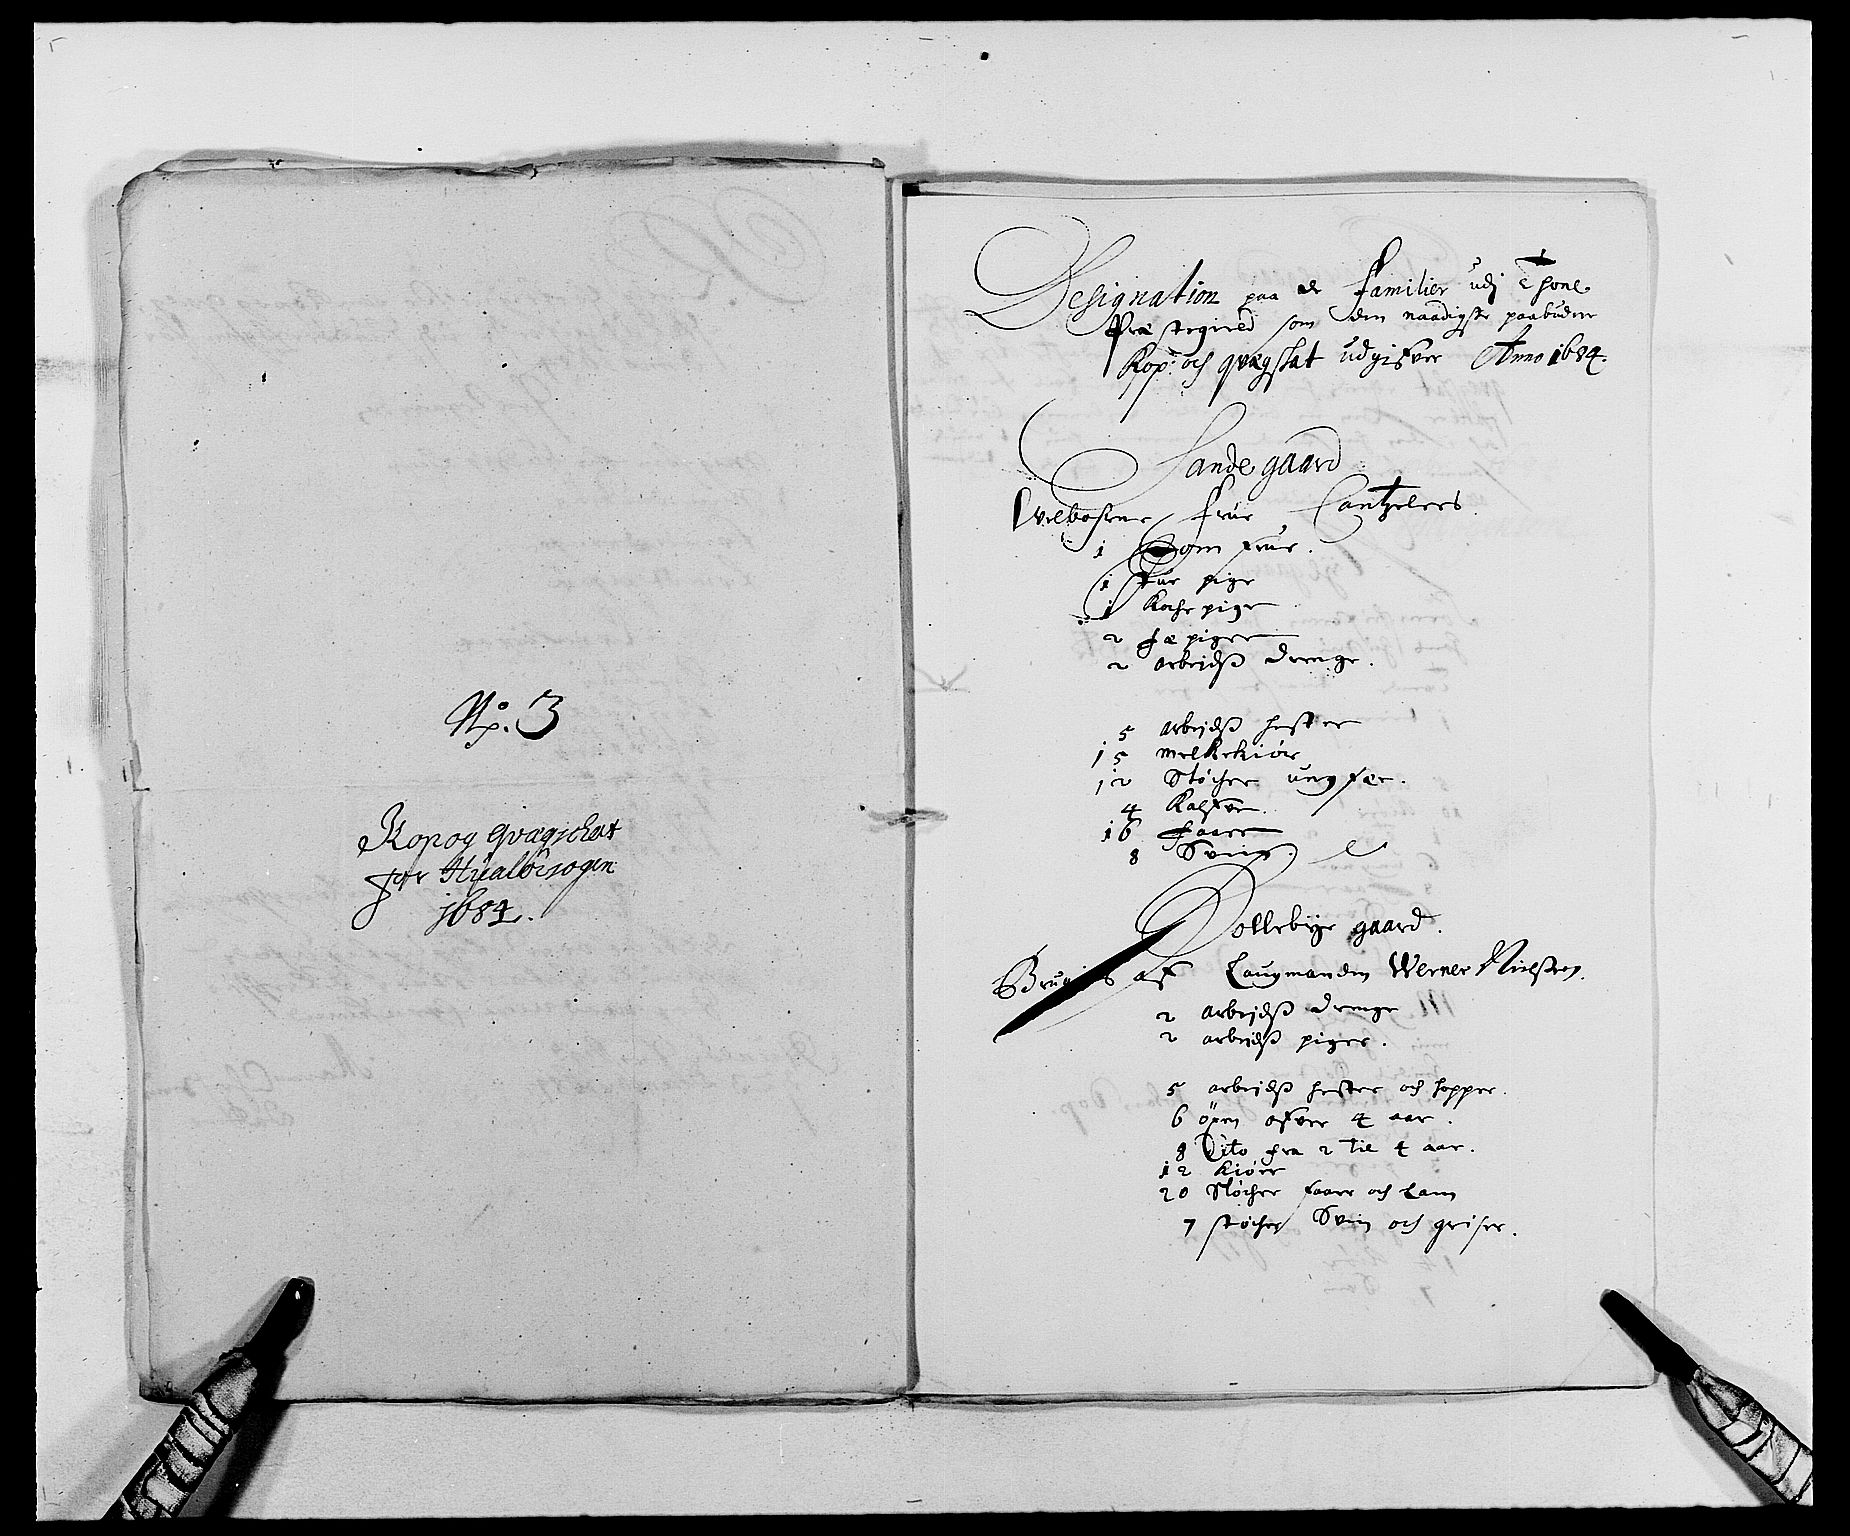 No. 3
Kop og qvægschat
for Hualørsogen
1684.
Designation paa de Familier udj Thune
Præstegield som den naadigste paabudne
Kop: och qvægskat udgifver Anno 1684.
Sande gaard
Velbohrne Frue Cantzelers
1 Jomfrue.
1 stue pige
1 Koche pige
2 fæ piger
2 arbejdsz drenge.
5 arbejdsz hester
15 melkekiør
12 støcher ung fæe.
4 Kalfve.
16 faar
8 Sviin.
Dollebye gaard.
Bruges af Laugmanden Werner Nielszen.
2 arbejdsz drenge
2 arbejdsz piger.
5 arbejdsz hester och hopper.
6 öxen ofver 4 aar.
8 Dito fra 2 til 4 aar.
12 kiør
20 støcher faar och Lam
7 støcher Sviin och griser.